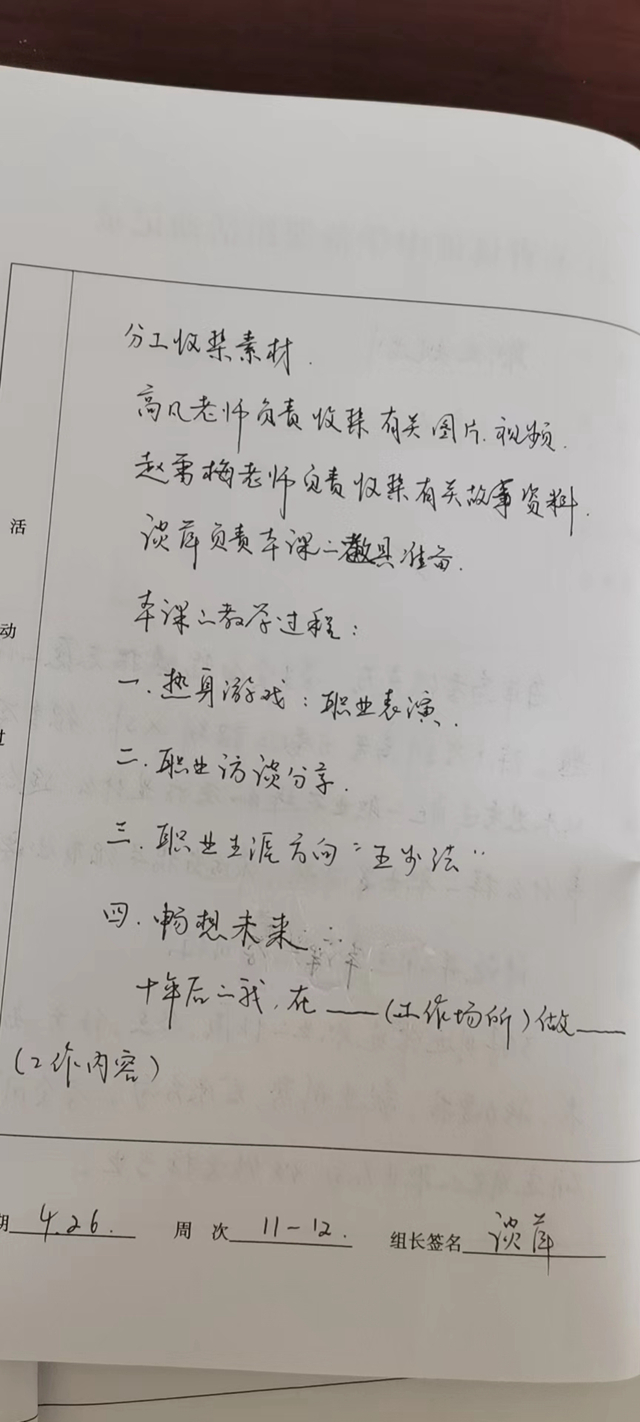 分工收集素材.
高凡老师负责收集有关图片.视频.
赵雷梅老师负责收集有关故事资料.
谈萍负责本课的教具准备.
本课的教学过程:
一.热身游戏:职业表演.
二.职业访谈分享.
三.职业生涯方向"五步法"
四.畅想未来
十年后的我,在____(工作场所)做____
(工作内容)
活
动
期 4.26. 周 次 11-12. 组长签名 谈萍